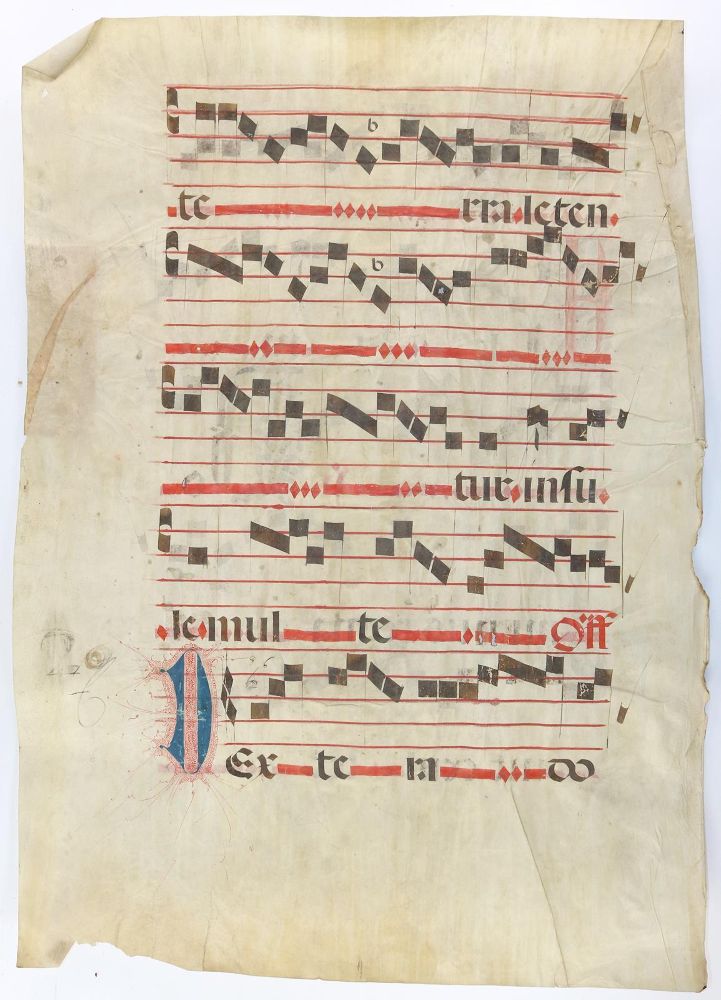 te rra leten
tur insu
le mul te Off
DExte ra do